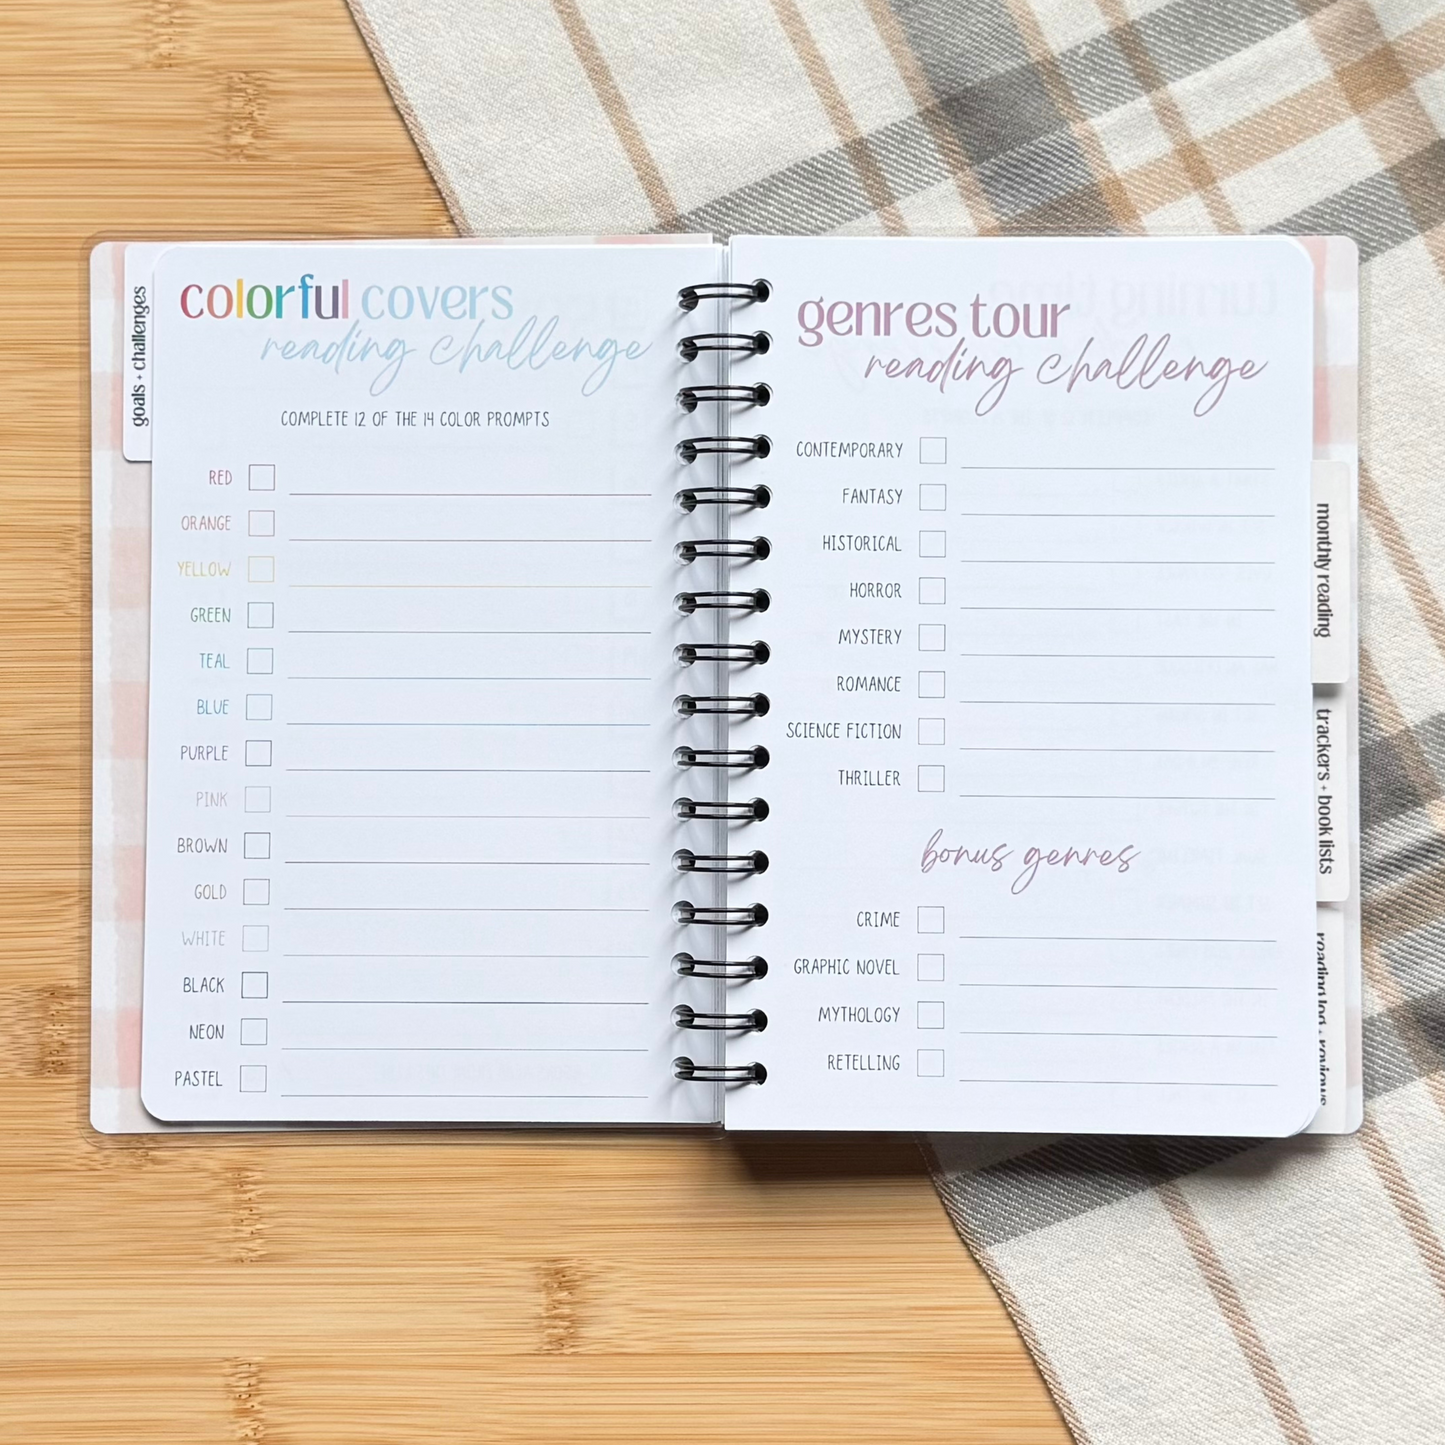 goals + challenges
colorful covers
reading challenge
COMPLETE 12 OF THE 14 COLOR PROMPTS
RED
ORANGE
YELLOW
GREEN
TEAL
BLUE
PURPLE
PINK
BROWN
GOLD
WHITE
BLACK
NEON
PASTEL
genres tour
reading challenge
CONTEMPORARY
FANTASY
HISTORICAL
HORROR
MYSTERY
ROMANCE
SCIENCE FICTION
THRILLER
bonus genres
CRIME
GRAPHIC NOVEL
MYTHOLOGY
RETELLING
monthly reading
trackers + book lists
reading log + reviews